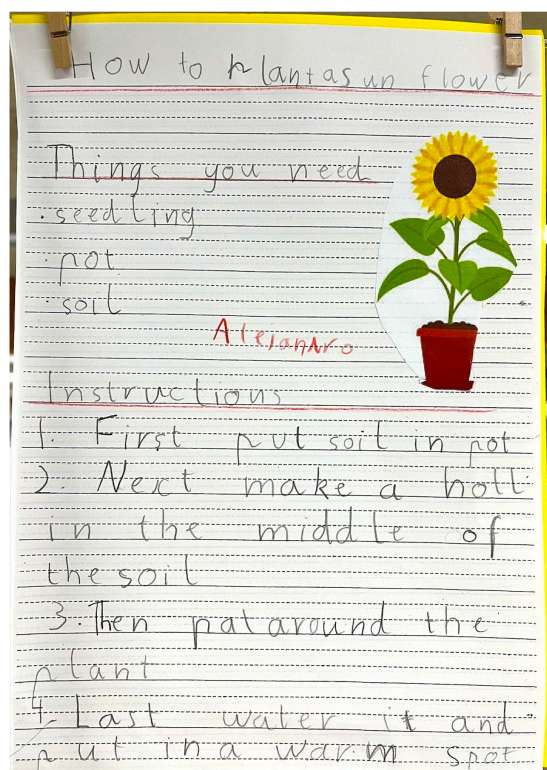 How to plant a sun flower
Things you need
· seedling
· pot
· soil
Alejandro
Instructions
1. First put soil in pot
2. Next make a holl
in the middle of
the soil
3. Then pat around the
plant
4. Last water it and
put in a warm spot